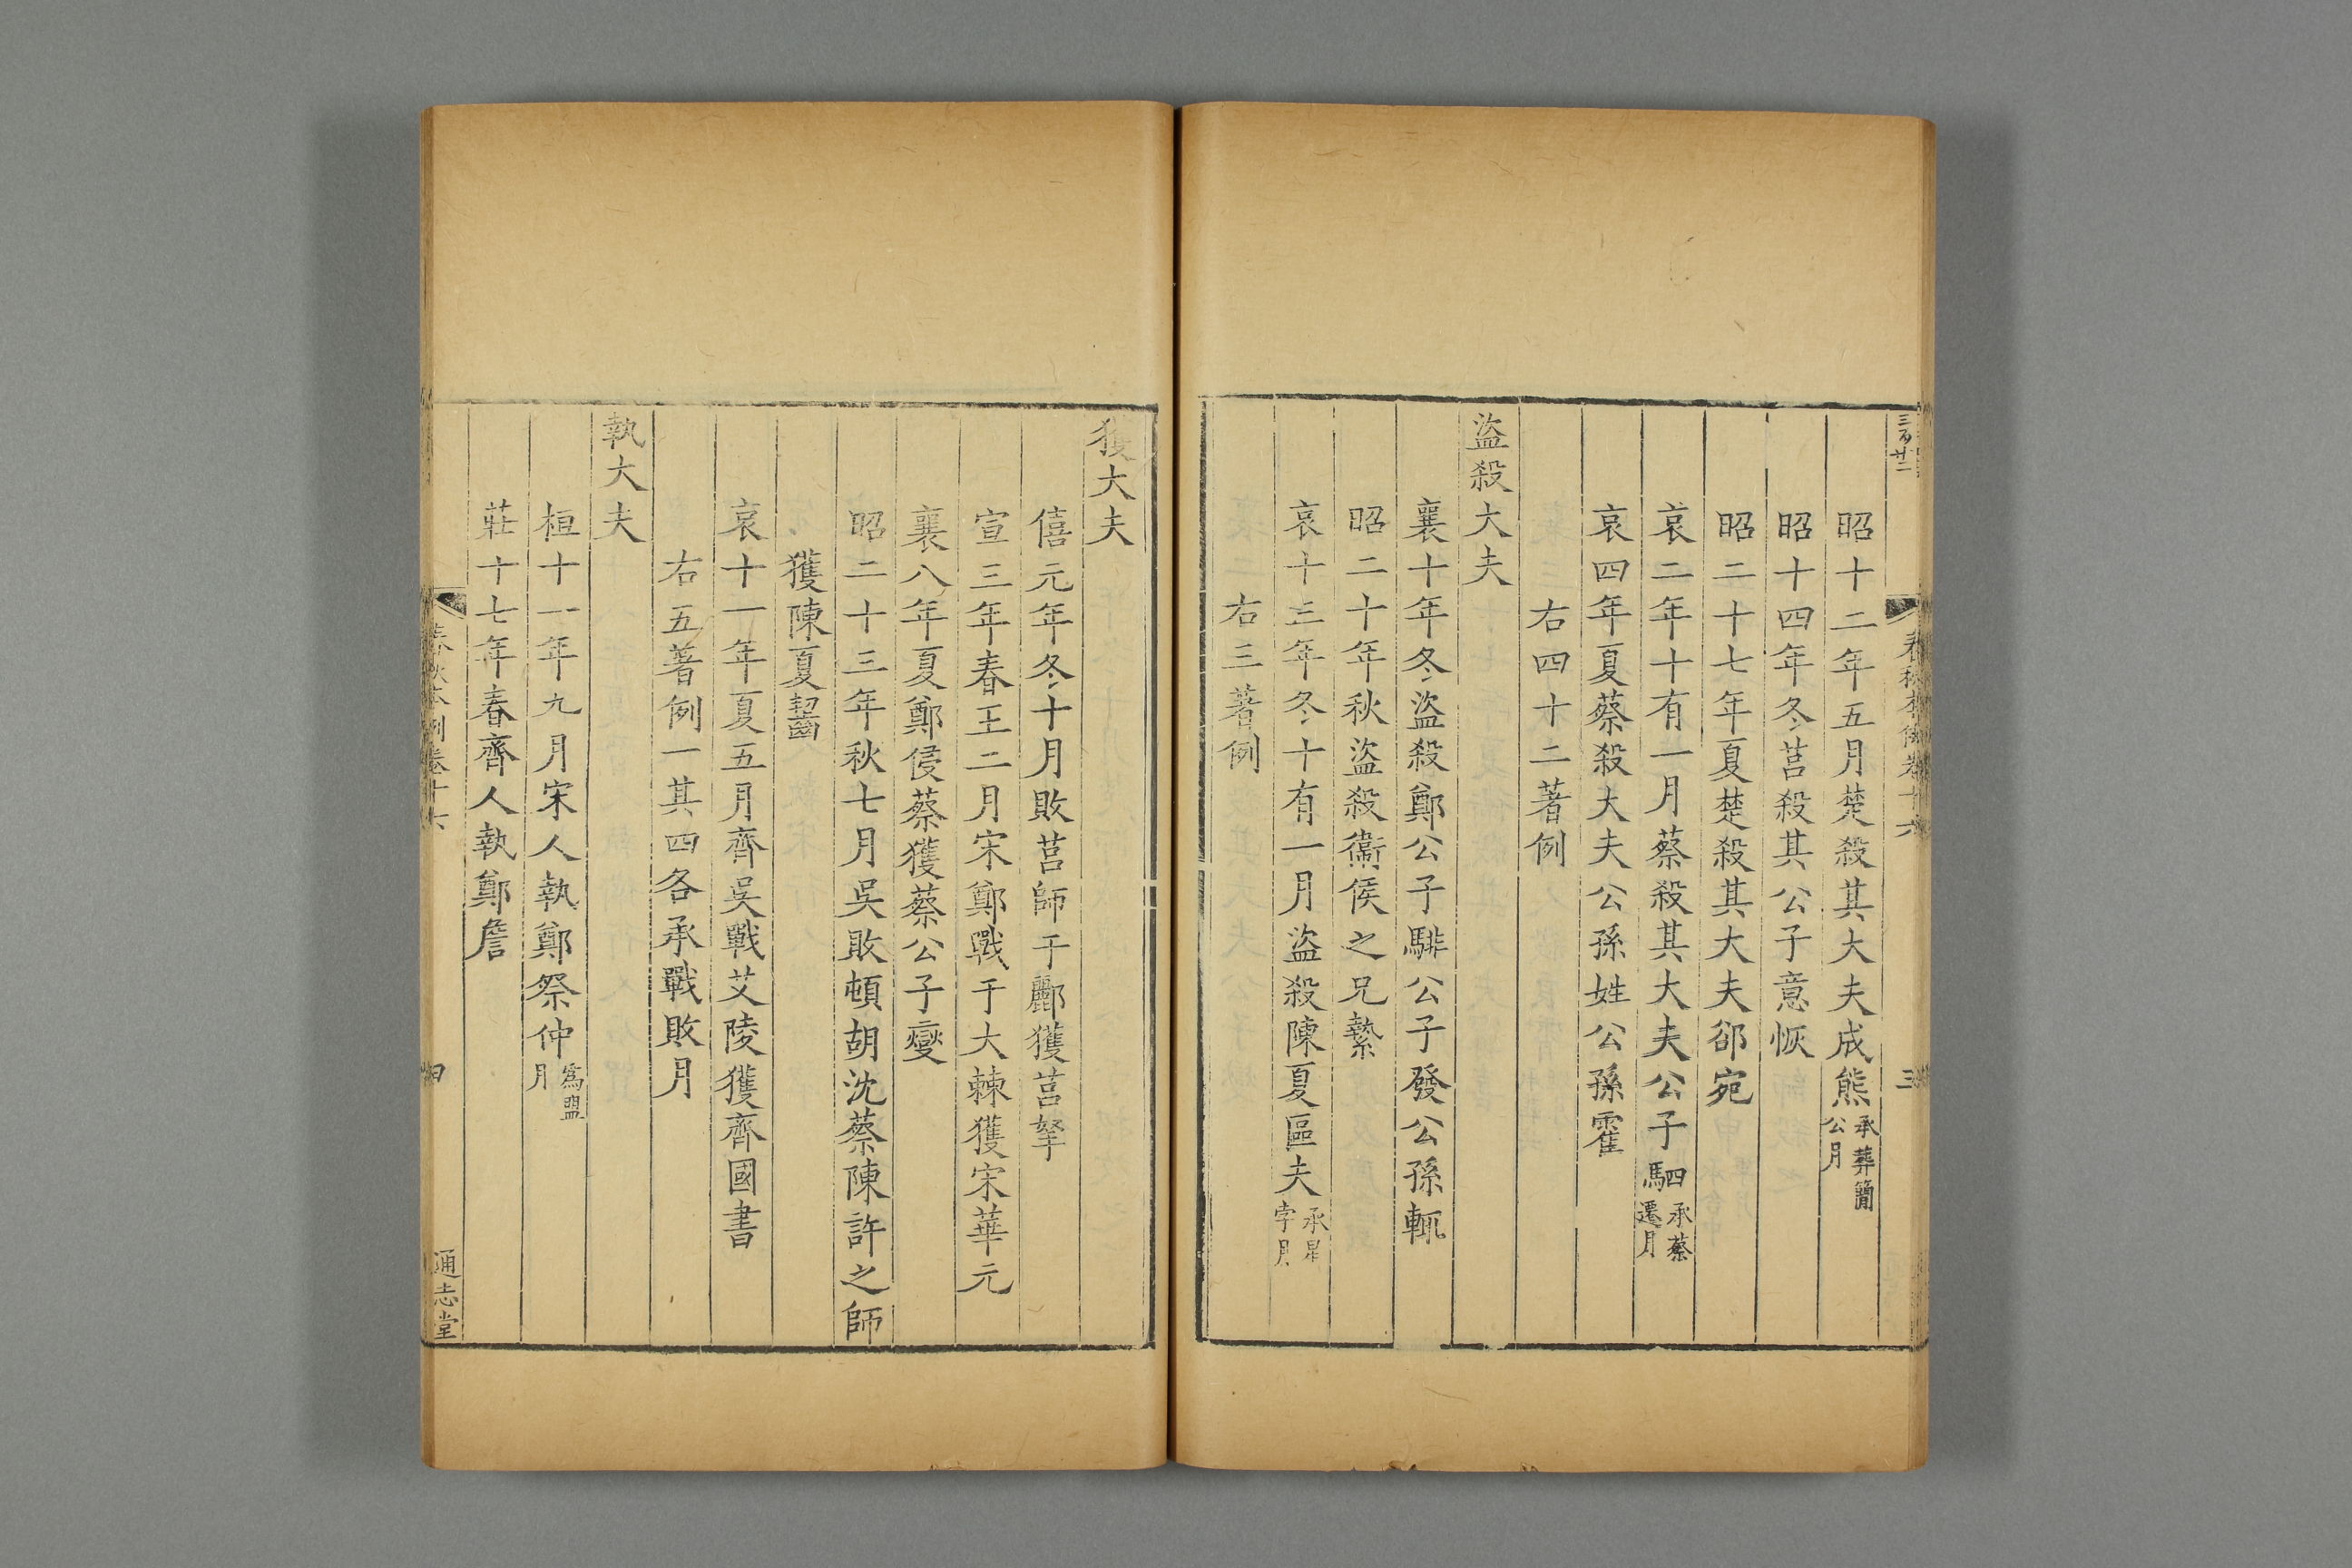 三百廿二
春秋本例卷十六
三
昭十二年五月楚殺其大夫成熊承葬簡公月
昭十四年冬莒殺其公子意恢
昭二十七年夏楚殺其大夫郤宛
哀二年十有一月蔡殺其大夫公子駟承蔡遷月
哀四年夏蔡殺大夫公孫姓公孫霍
右四十二著例
盜殺大夫
襄十年冬盜殺鄭公子騑公子發公孫輒
昭二十年秋盜殺衞侯之兄縶
哀十三年冬十有一月盜殺陳夏區夫承星孛月
右三著例
獲大夫
僖元年冬十月敗莒師于酈獲莒挐
宣三年春王二月宋鄭戰于大棘獲宋華元
襄八年夏鄭侵蔡獲蔡公子燮
昭二十三年秋七月吳敗頓胡沈蔡陳許之師
獲陳夏齧
哀十一年夏五月齊吳戰艾陵獲齊國書
右五著例一其四各承戰敗月
執大夫
桓十一年九月宋人執鄭祭仲爲盟月
莊十七年春齊人執鄭詹
春秋本例卷十六
四
通志堂